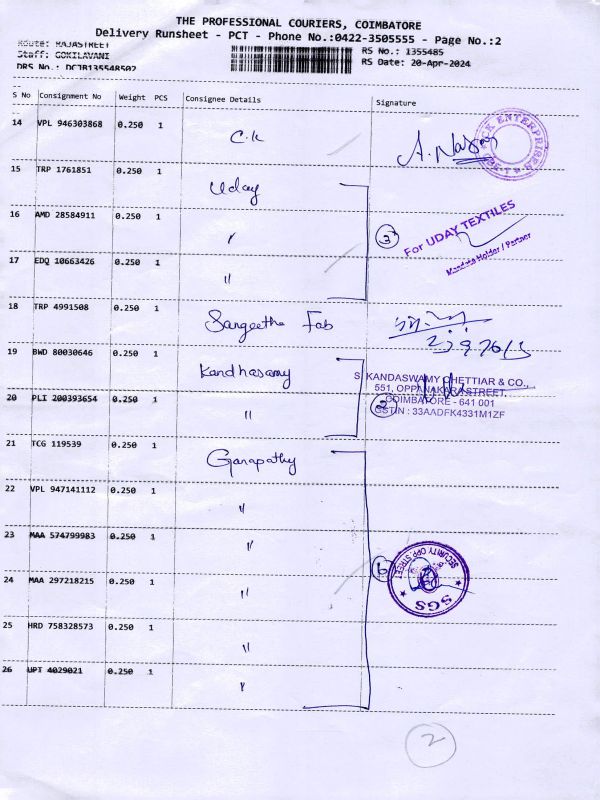 THE PROFESSIONAL COURIERS, COIMBATORE
Delivery Runsheet - PCT - Phone No.:0422-3505555 - Page No.:2
Route: RAJASTREET
RS No.: 1355485
Staff: GOKILAVANI
RS Date: 20-Apr-2024
DRS No.: DCJB135548502
S No Consignment No Weight PCS Consignee Details Signature
14 VPL 946303868 0.250 1 C.K A.
CK ENTERPRISES
15 TRP 1761851 0.250 1 Uday
16 AMD 28584911 0.250 1 〃 3 For UDAY TEXTILES
Mandate Holder / Partner
17 EDQ 10663426 0.250 1 〃
18 TRP 4991508 0.250 1 Sangeetha Fab
19 BWD 80030646 0.250 1 Kandhasamy
S. KANDASWAMY CHETTIAR & CO.,
551, OPPANAKARA STREET,
20 PLI 200393654 0.250 1 〃 2 COIMBATORE - 641 001
GSTIN : 33AADFK4331M1ZF
21 TCG 119539 0.250 1 Ganapathy
22 VPL 947141112 0.250 1 〃
23 MAA 574799983 0.250 1 〃
6 SECURITY OPP. STREET
SGS
24 MAA 297218215 0.250 1 〃
25 HRD 758328573 0.250 1 〃
26 UPT 4029021 0.250 1 〃
2